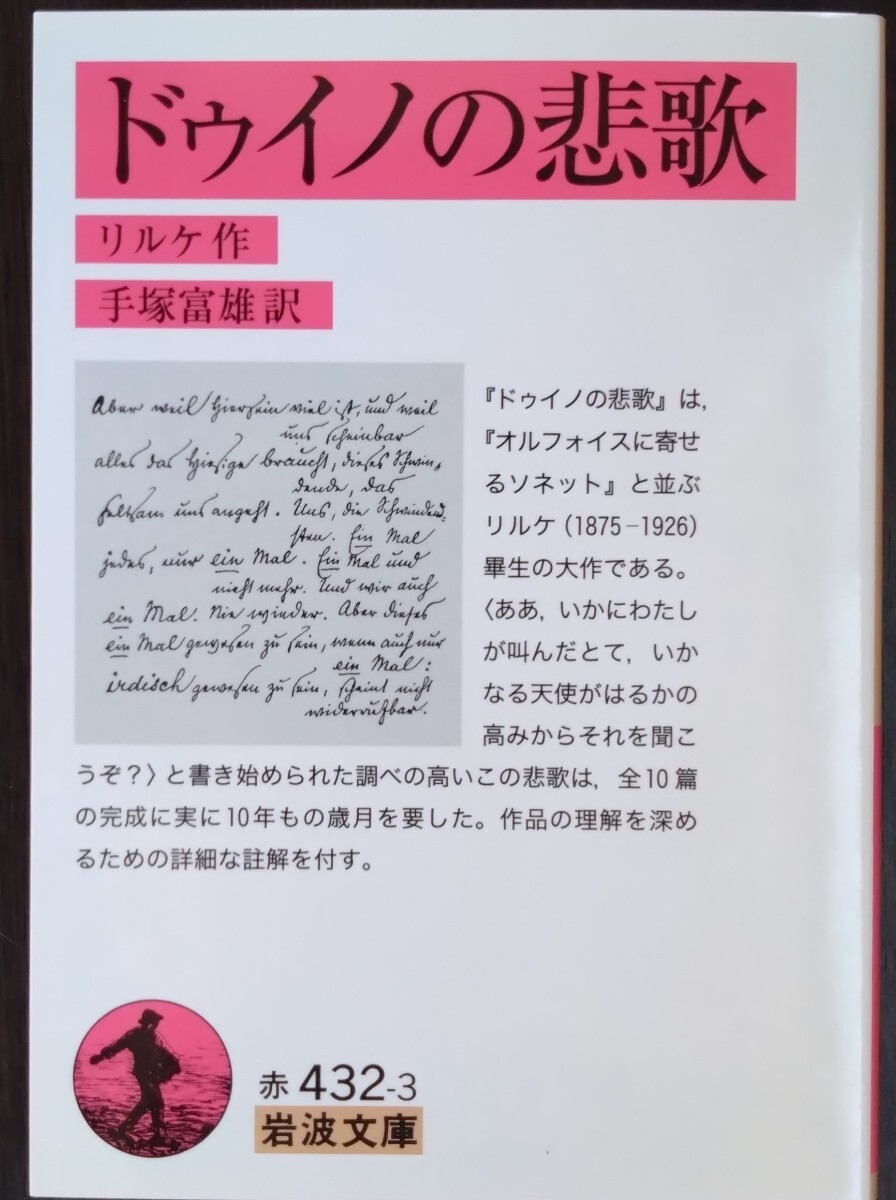 ドゥイノの悲歌
リルケ作
手塚富雄訳
Aber weil Hiersein viel ist, und weil
uns scheinbar
alles das Hiesige braucht, dieses Schwin-
dende, das
seltsam uns angeht. Uns, die Schwindend-
sten. Ein Mal
jedes, nur ein Mal. Ein Mal und
nicht mehr. Und wir auch
ein Mal. Nie wieder. Aber dieses
ein Mal gewesen zu sein, wenn auch nur
ein Mal:
irdisch gewesen zu sein, scheint nicht
widerrufbar.
『ドゥイノの悲歌』は,
『オルフォイスに寄せ
るソネット』と並ぶ
リルケ(1875-1926)
畢生の大作である。
〈ああ, いかにわたし
が叫んだとて, いか
なる天使がはるかの
高みからそれを聞こ
うぞ?〉と書き始められた調べの高いこの悲歌は, 全10篇
の完成に実に10年もの歳月を要した。作品の理解を深め
るための詳細な註解を付す。
赤 432-3
岩波文庫